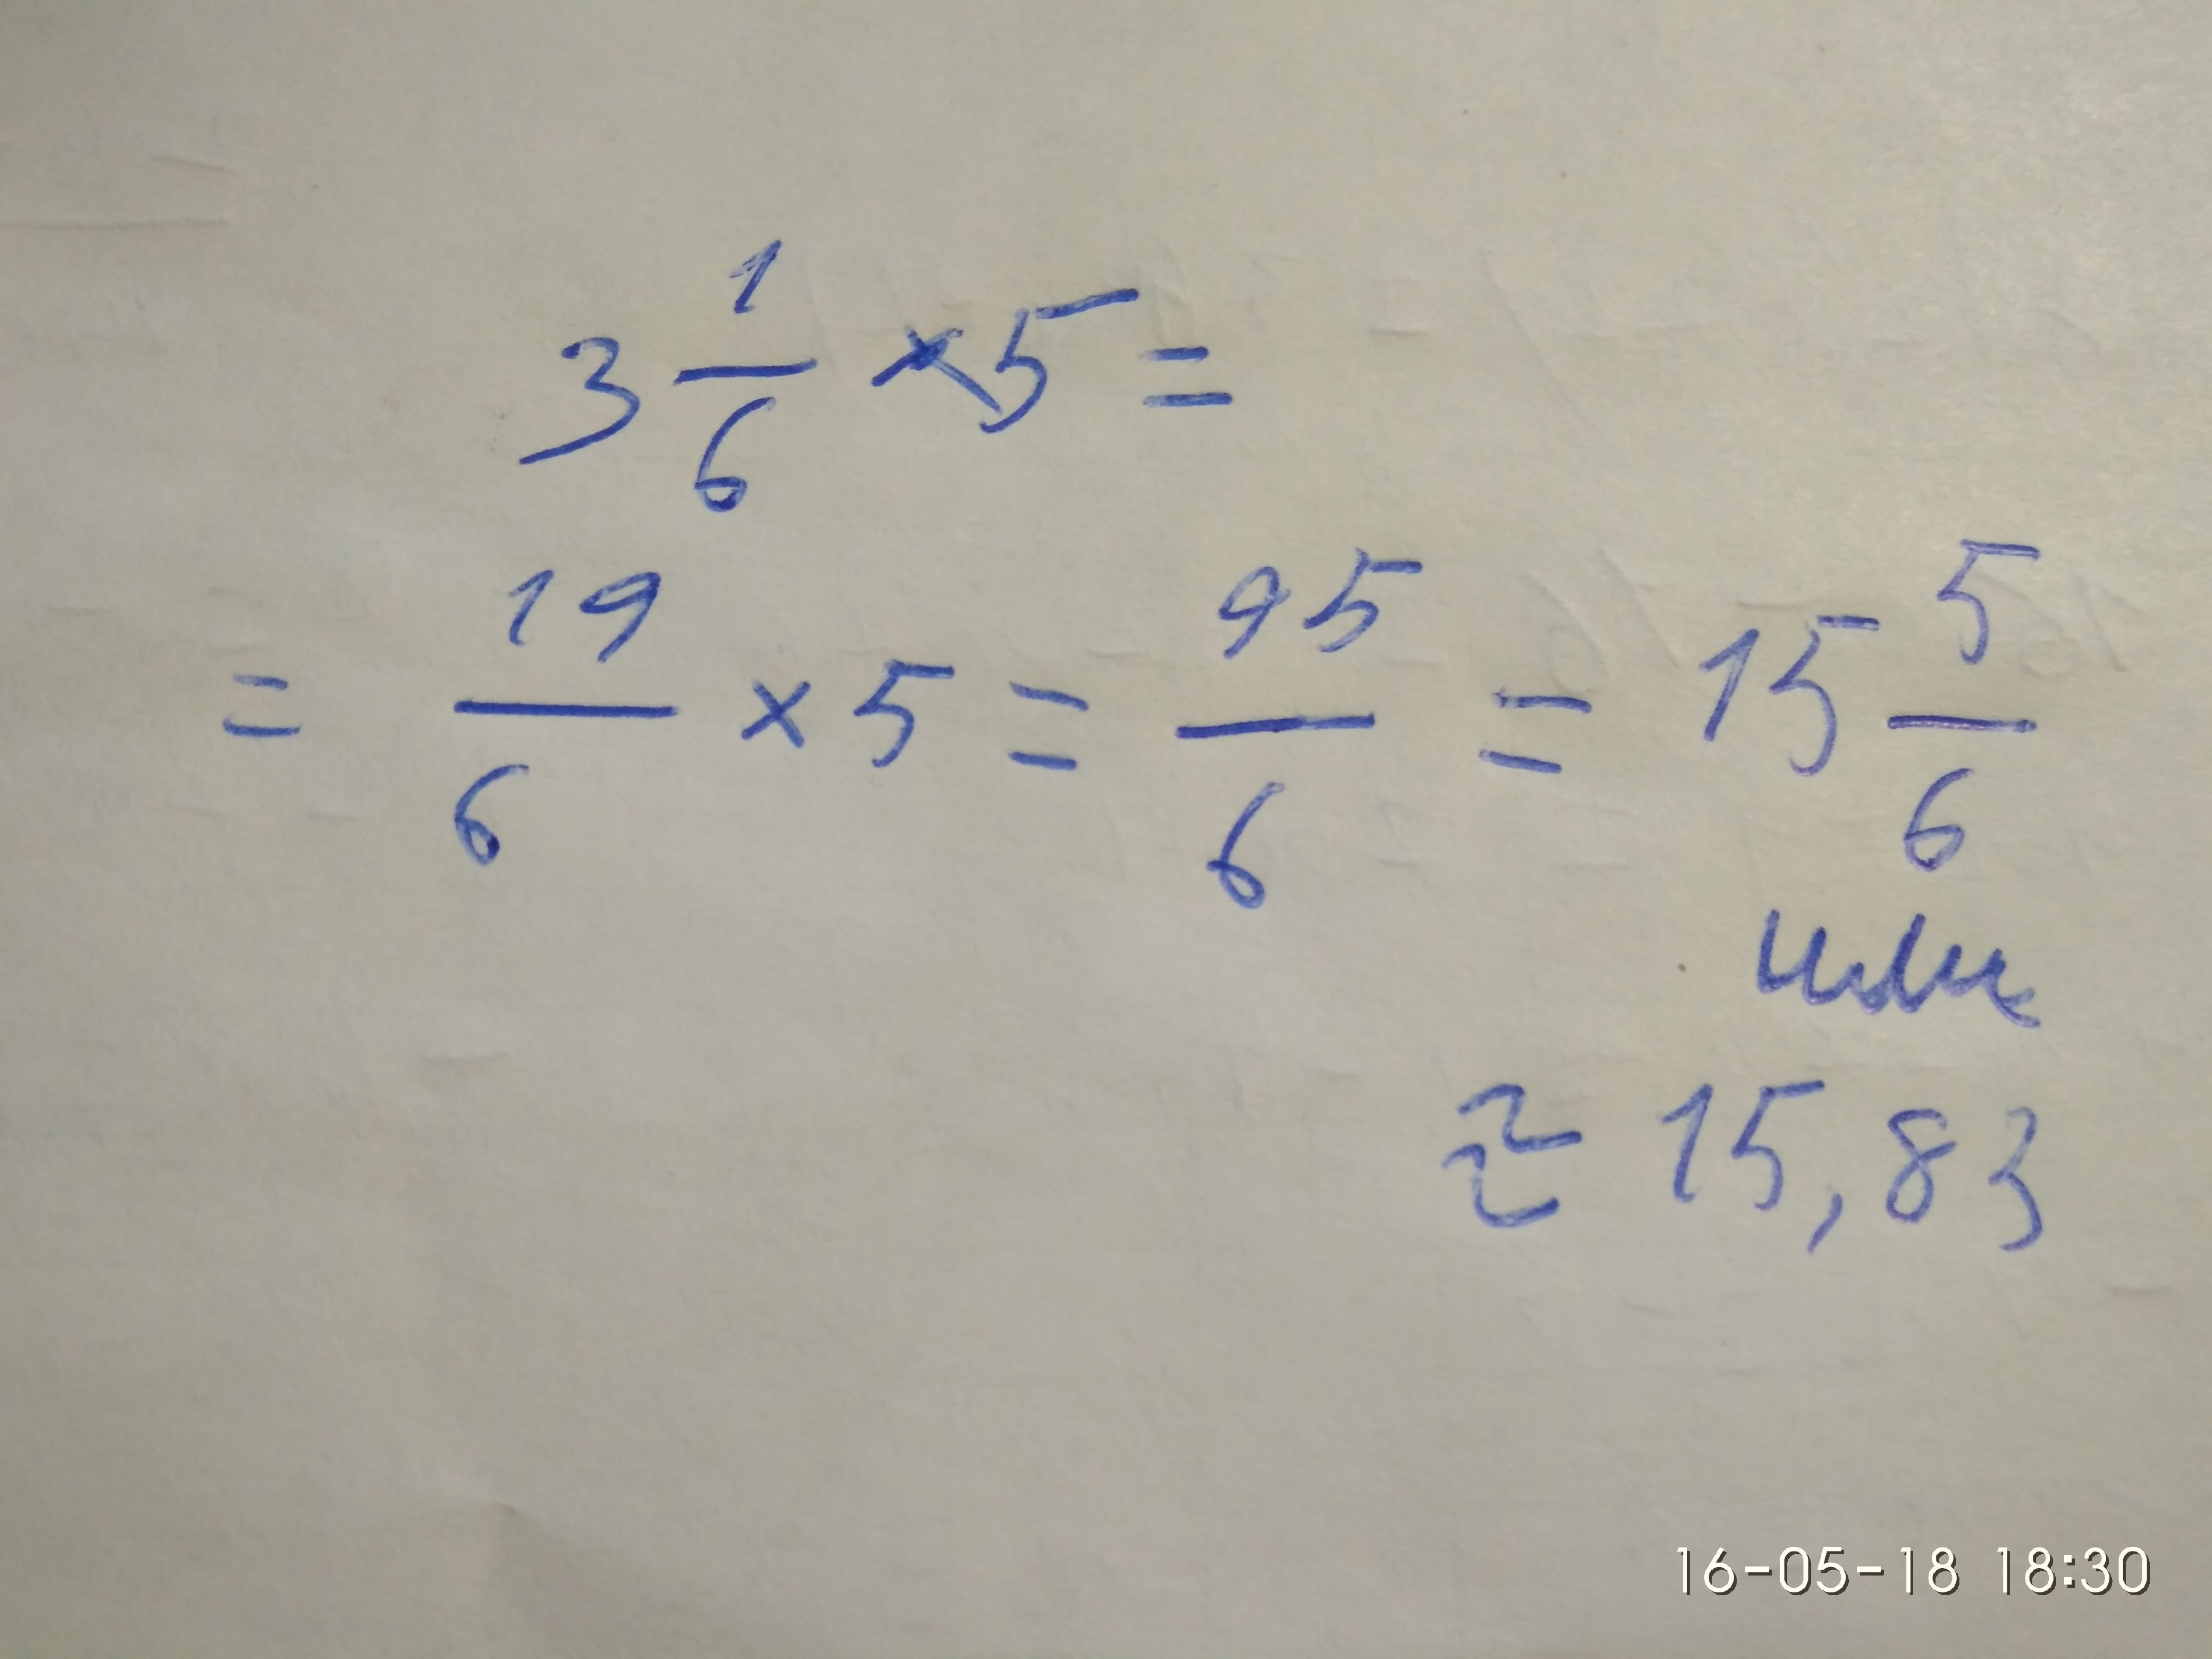 3 1/6 × 5 =
= 19/6 × 5 = 95/6 = 15 5/6
или
≈ 15,83
16-05-18 18:30